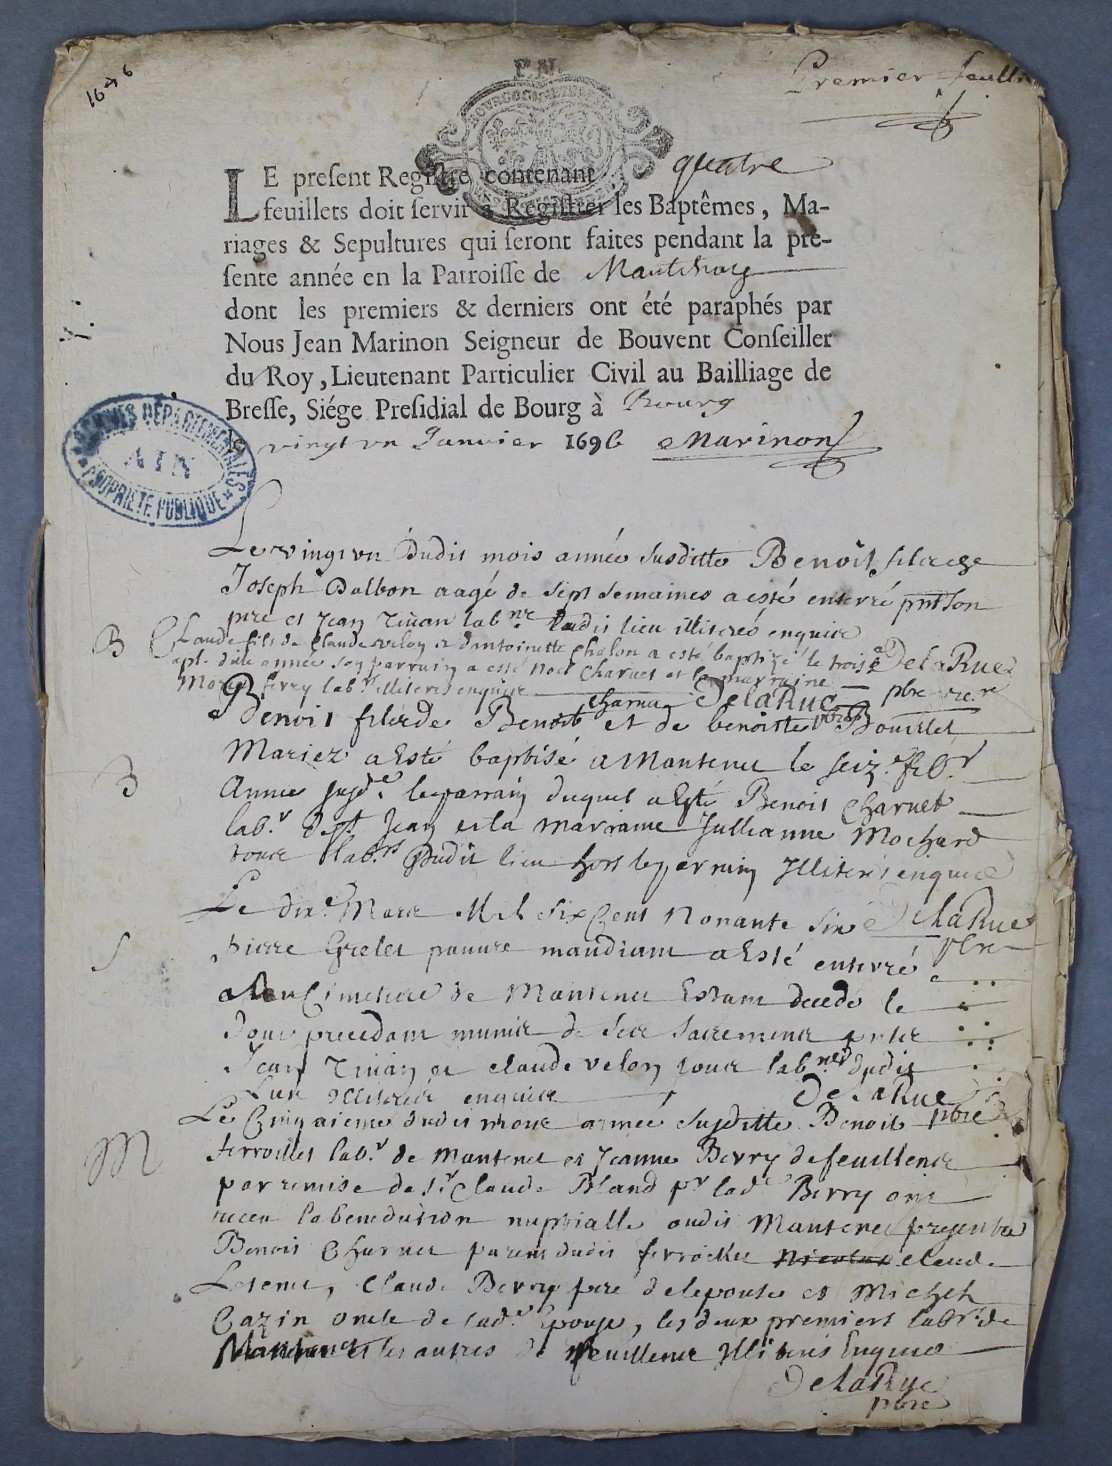 1696
Premier feuill
P.N.
LE preſent Regiſtre contenant quatre
feuillets doit ſervir à Regiſtrer les Baptêmes, Ma-
riages & Sepultures qui ſeront faites pendant la pre-
ſente année en la Parroiſſe de
dont les premiers & derniers ont été paraphés par
Nous Jean Marinon Seigneur de Bouvent Conſeiller
du Roy, Lieutenant Particulier Civil au Bailliage de
Breſſe, Siége Preſidial de Bourg à Bourg
le vingt vn Janvier 1696 Marinon
ARCHIVES DÉPARTEMENTALES
AIN
PROPRIÉTÉ PUBLIQUE
Le vingt vn Dudit mois année susditte Benoit fils de
Joseph Dalbon aagé de sept semaines a esté enterré pnt son
pere et Jean labnr dudit lieu illiterés enquis
B
Claude fils de Claude velon et dantoinette Chalon a esté baptizé le trois
DelaRue
apl. dite année son parrain a esté Noel Charnet et la marraine
ferry labr illiteris enquise
charnet DelaRue pbre
Benoit fils de Benoit et de benoitte Bouillet
B
Mariez a Esté baptisé a Mantenet le seiz. febr
Annee susd.e le parrain duquel a Esté Benoit Charnet
lab.r de St Jean et la Marraine Jullianne Mochard
tous lab.rs Dudit lieu hors le parrain Illiterés enquis
Le dix.e Mars Mil six Cens Nonante six DelaRue
pbre
S
pierre Grelet pauure mandiant a Esté enterré
au Cimetiere de Mantenet Estant decedé le
Jour precedant munit de ses sacremens pnts
Jean et claude velon tous labnrs dudit
Lieu Illiterés enquis DelaRue
pbre
M
Le Cinquieme dudit mois année susditte Benoit
ferroillet lab.r de Mantenet et Jeanne Berry de feuillens
par remise de Sr Claude Bland pr lad.e Berry ont
receu la benediction nuptialle audit Mantenet presents
Benoit Charnet parent dudit Nicolas claude
Claude Berry pere de lepouse et Michel
Cazin oncle de lad.e Epouse, les deux premiers labrs de
Mantenet et les autres de feuillens Illiterés Enquis
DelaRue
pbre